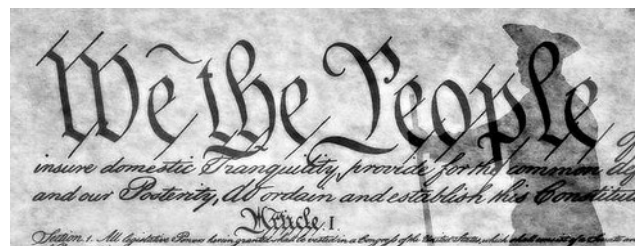 We the People
insure domestic Tranquility, provide for the common
and our Posterity, do ordain and establish this Constitu
Article. I
Section 1. All legislative Powers herein granted shall be vested in a Congress of the United States, which shall consist of a Senate and